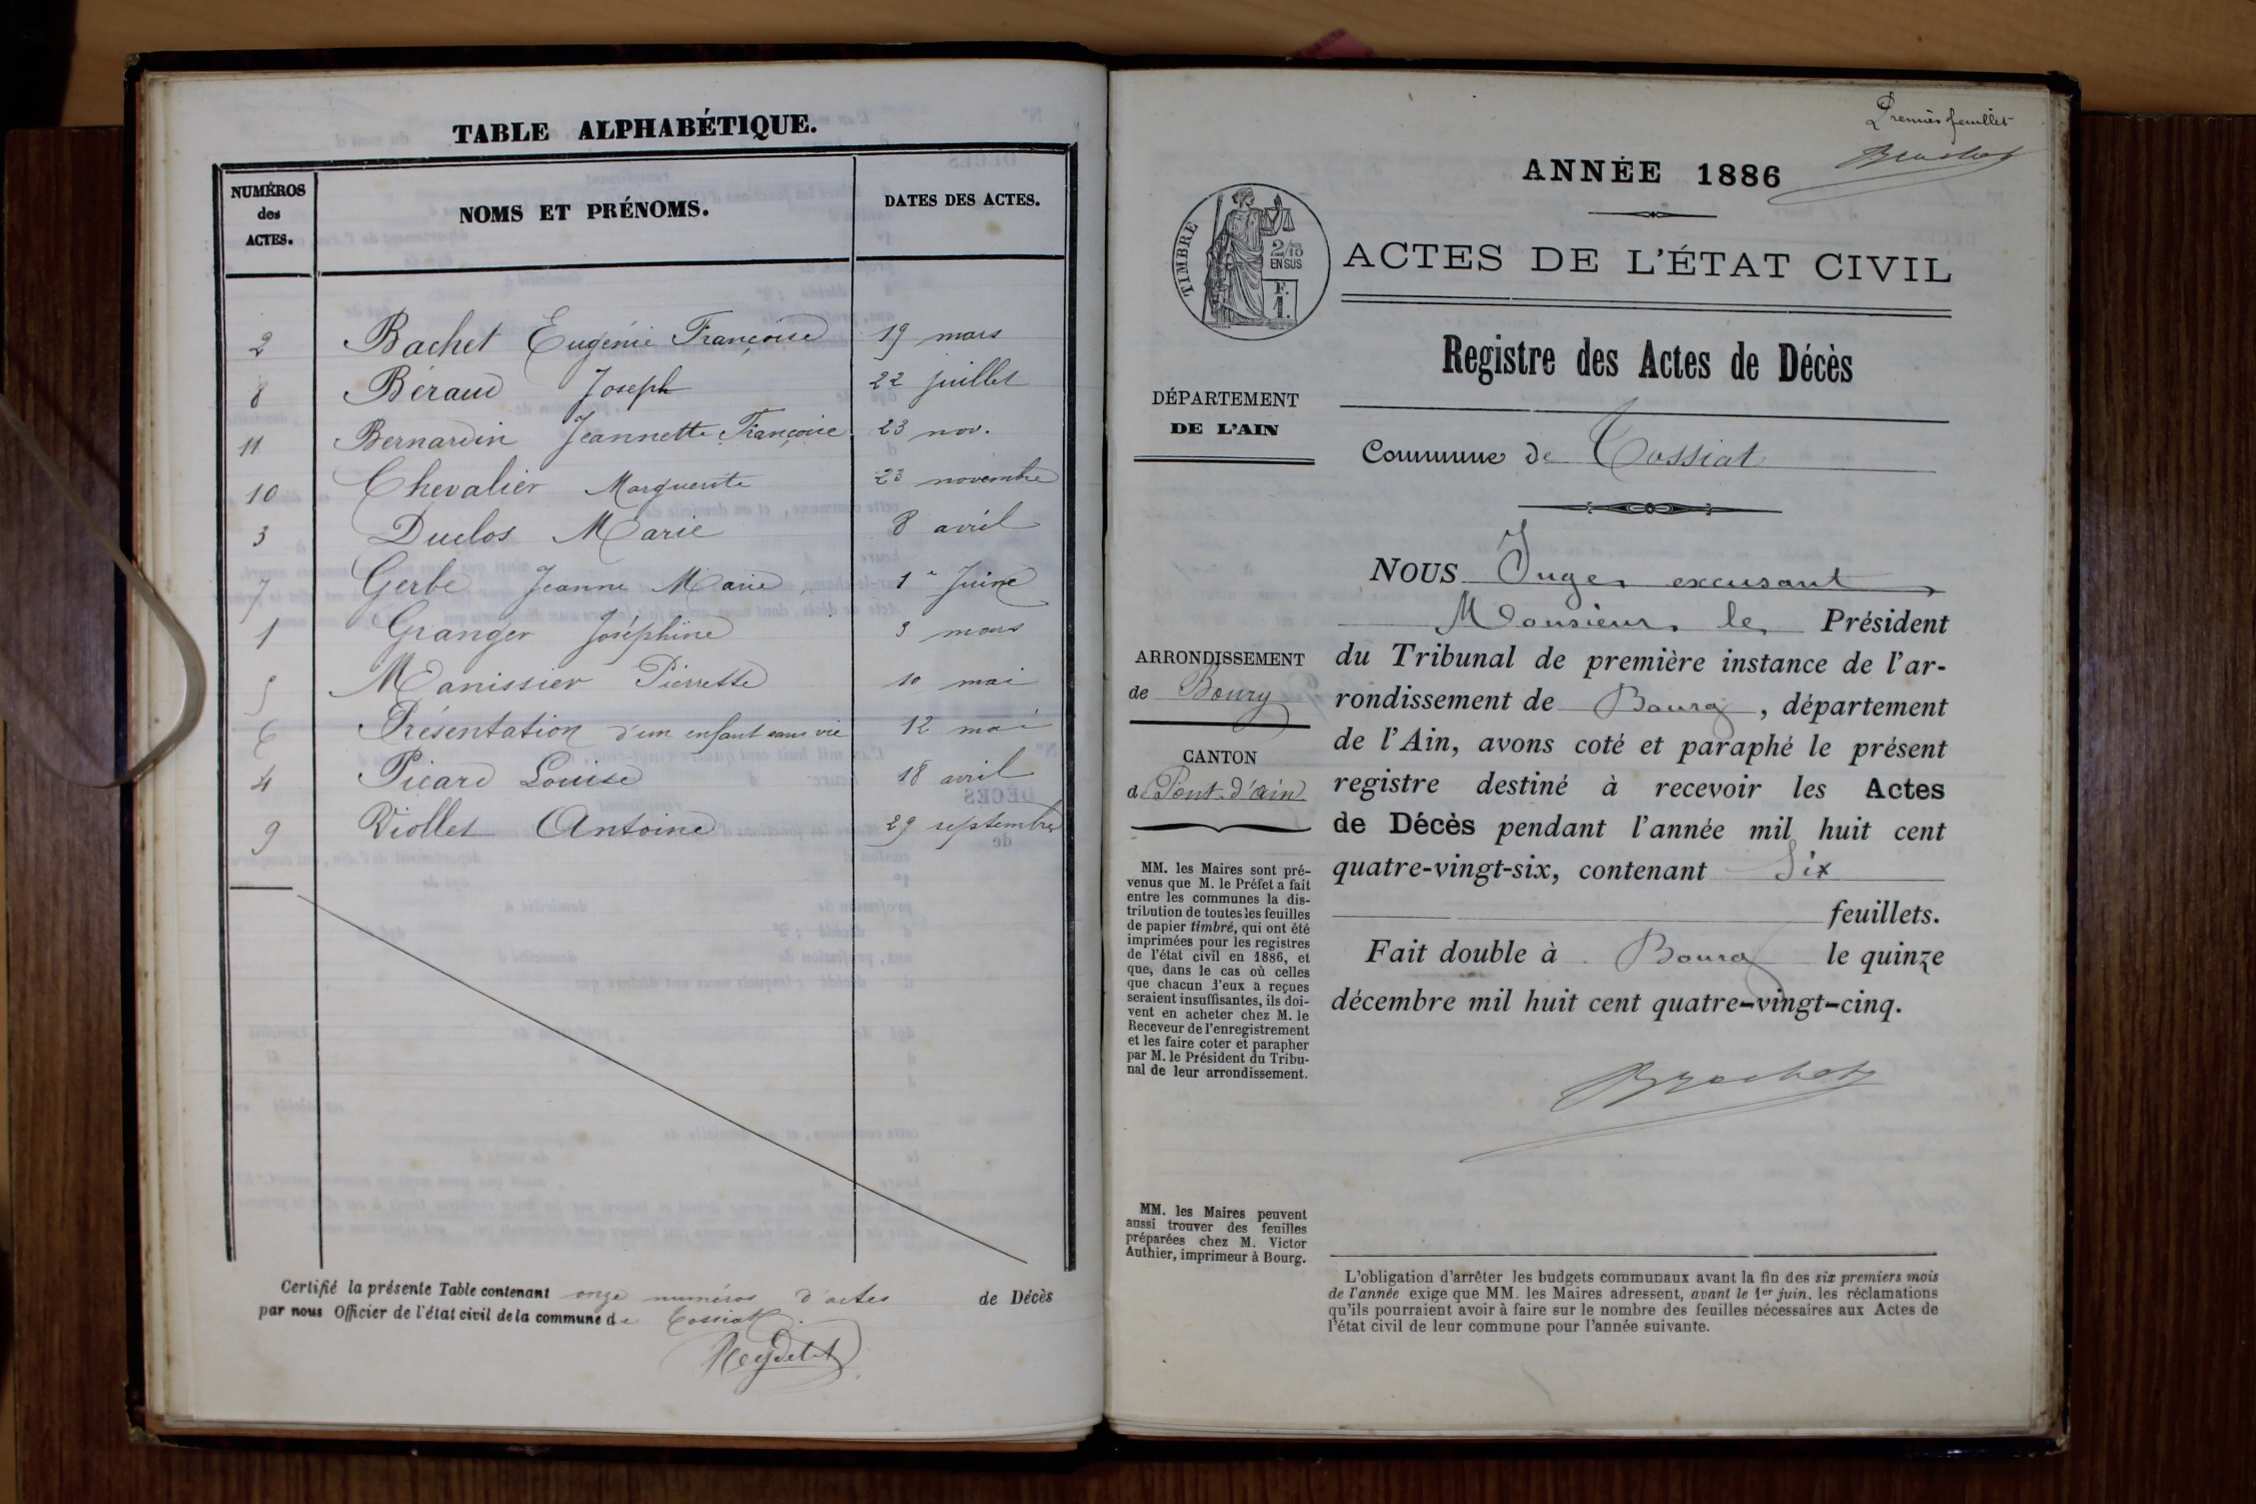 TABLE ALPHABÉTIQUE.
NUMÉROS des ACTES. NOMS ET PRÉNOMS. DATES DES ACTES.
2 Bachet Eugénie Françoise 19 mars
8 Béraud Joseph 22 juillet
11 Bernardin Jeannette Françoise 23 nov.
10 Chevalier Marguerite 23 novembre
3 Duclos Marie 8 avril
7 Gerbe Jeanne Marie 1er Juine
1 Granger Joséphine 3 mars
5 Manissier Pierrette 10 mai
6 Présentation d'un enfant sans vie 12 mai
4 Picard Louise 18 avril
9 Viollet Antoine 29 septembre
Certifié la présente Table contenant onze numéros d'actes de Décès
par nous Officier de l'état civil de la commune de Tossiat.
Premier feuillet
ANNÉE 1886
TIMBRE
2/10
EN SUS
F.
1.
ACTES DE L'ÉTAT CIVIL
Registre des Actes de Décès
DÉPARTEMENT
DE L'AIN
Commune de Tossiat
ARRONDISSEMENT
de Bourg
CANTON
de Pont-d'ain
MM. les Maires sont pré-
venus que M. le Préfet a fait
entre les communes la dis-
tribution de toutes les feuilles
de papier timbré, qui ont été
imprimées pour les registres
de l'état civil en 1886, et
que, dans le cas où celles
que chacun d'eux a reçues
seraient insuffisantes, ils doi-
vent en acheter chez M. le
Receveur de l'enregistrement
et les faire coter et parapher
par M. le Président du Tribu-
nal de leur arrondissement.
MM. les Maires peuvent
aussi trouver des feuilles
préparées chez M. Victor
Authier, imprimeur à Bourg.
NOUS Juge, excusant
Monsieur le Président
du Tribunal de première instance de l'ar-
rondissement de Bourg, département
de l'Ain, avons coté et paraphé le présent
registre destiné à recevoir les Actes
de Décès pendant l'année mil huit cent
quatre-vingt-six, contenant Six
feuillets.
Fait double à Bourg le quinze
décembre mil huit cent quatre-vingt-cinq.
L'obligation d'arrêter les budgets communaux avant la fin des six premiers mois
de l'année exige que MM. les Maires adressent, avant le 1er juin, les réclamations
qu'ils pourraient avoir à faire sur le nombre des feuilles nécessaires aux Actes de
l'état civil de leur commune pour l'année suivante.